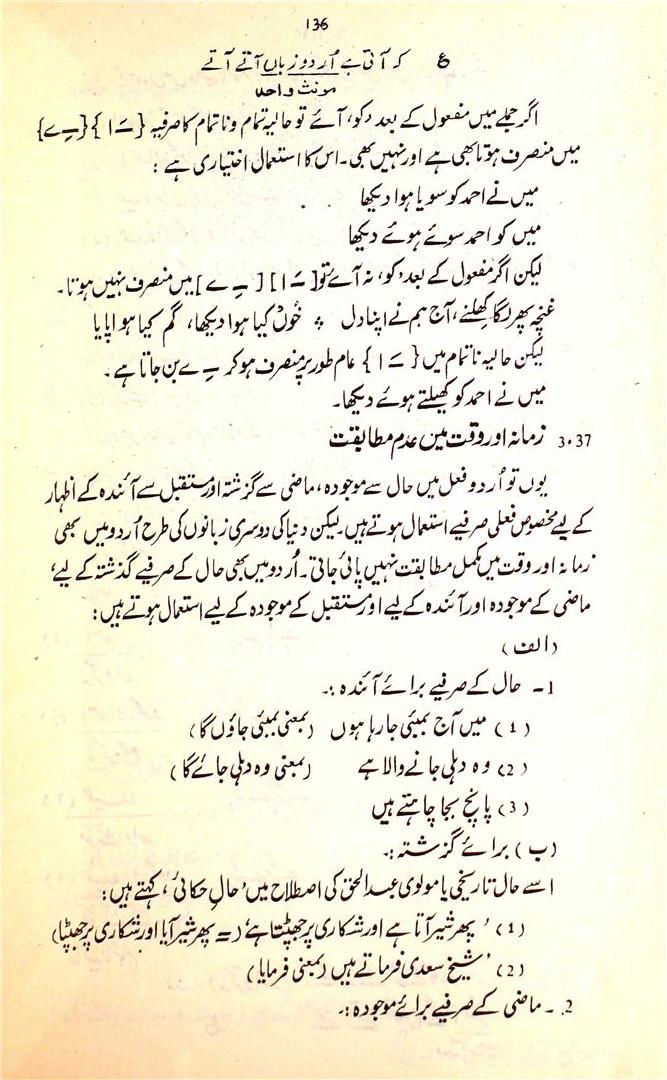 136
ع کہ آتی ہے اُردو زباں آتے آتے
مونث واحد
اگر جملے میں مفعول کے بعد ’کو‘ آئے تو حالیہ تمام و ناتمام کا صرفیہ {ــَ ا} {ــِ ے}
میں منصرف ہوتا بھی ہے اور نہیں بھی۔ اس کا استعمال اختیاری ہے :
میں نے احمد کو سویا ہوا دیکھا
میں کو احمد سوئے ہوئے دیکھا
لیکن اگر مفعول کے بعد ’کو‘ نہ آئے تو [ــَ ا] [ــِ ے] میں منصرف نہیں ہوتا۔
غنچہ پھر لگا کھلنے، آج ہم نے اپنا دل ؞ خُوں کیا ہوا دیکھا، گم کیا ہوا پایا
لیکن حالیہ ناتمام میں {ــَ ا} عام طور پر منصرف ہو کر ــِ ے بن جاتا ہے۔
میں نے احمد کو کھیلتے ہوئے دیکھا۔
3.37 زمانہ اور وقت میں عدم مطابقت
یوں تو اُردو فعل میں حال سے موجودہ، ماضی سے گزشتہ اور مستقبل سے آئندہ کے اظہار
کے لیے مخصوص فعلی صرفیے استعمال ہوتے ہیں۔ لیکن دنیا کی دوسری زبانوں کی طرح اُردو میں بھی
زمانہ اور وقت میں مکمل مطابقت نہیں پائی جاتی۔ اُردو میں بھی حال کے صرفیے گذشتہ کے لیے،
ماضی کے موجودہ اور آئندہ کے لیے اور مستقبل کے موجودہ کے لیے استعمال ہوتے ہیں :
(الف)
1۔ حال کے صرفیے برائے آئندہ :۔
(1) میں آج بمبئی جا رہا ہوں (بمعنی بمبئی جاؤں گا)
(2) وہ دہلی جانے والا ہے (بمعنی وہ دہلی جائے گا)
(3) پانچ بجا چاہتے ہیں
(ب) برائے گزشتہ :۔
اسے حال تاریخی یا مولوی عبدالحق کی اصطلاح میں ’حالِ حکائی‘، کہتے ہیں :
(1) ’پھر شیر آتا ہے اور شکاری پر جھپٹتا ہے‘ (= پھر شیر آیا اور شکاری پر جھپٹا)
(2) ’شیخ سعدی فرماتے ہیں (بمعنی فرمایا)
2.۔ ماضی کے صرفیے برائے موجودہ :۔